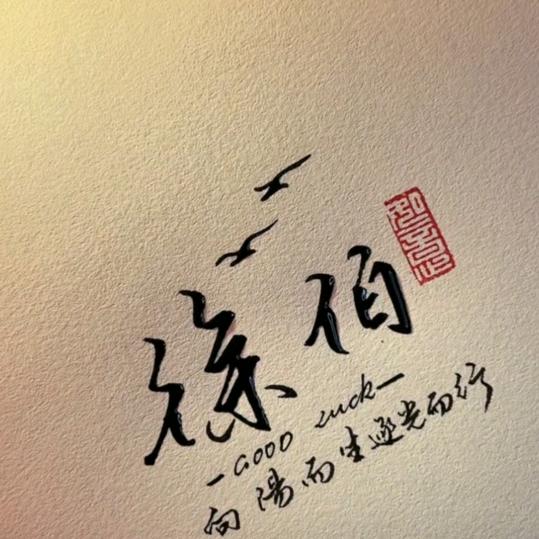 徐伯
-GOOD LUCK-
向陽而生逐光而行